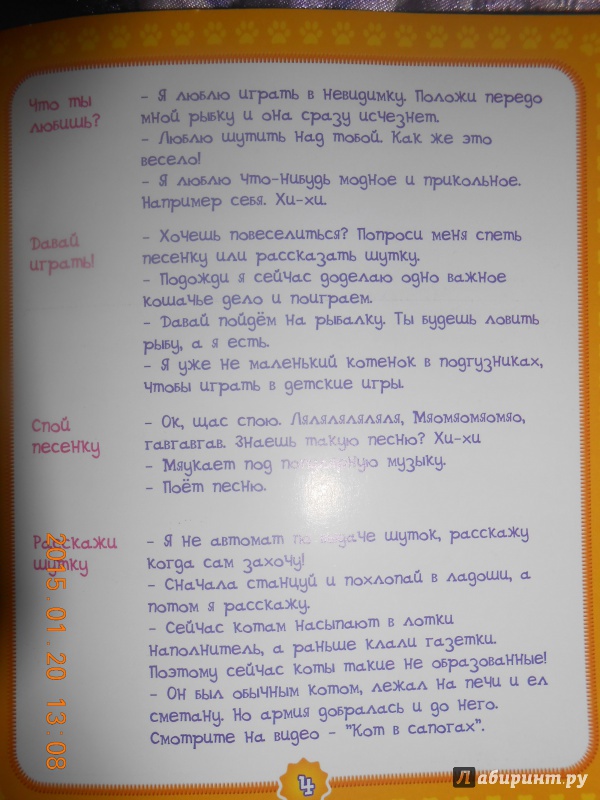 Что ты
любишь?
- Я люблю играть в невидимку. Положи передо
мной рыбку и она сразу исчезнет.
- Люблю шутить над тобой. Как же это
весело!
- Я люблю что-нибудь модное и прикольное.
Например себя. Хи-хи.
Давай
играть!
- Хочешь повеселиться? Попроси меня спеть
песенку или рассказать шутку.
- Подожди я сейчас доделаю одно важное
кошачье дело и поиграем.
- Давай пойдём на рыбалку. Ты будешь ловить
рыбу, а я есть.
- Я уже не маленький котенок в подгузниках,
чтобы играть в детские игры.
Спой
песенку
- Ок, щас спою. Ляляляляляля, Мяомяомяомяо,
гавгавгав. Знаешь такую песню? Хи-хи
- Мяукает под музыку.
- Поёт песню.
Расскажи
шутку
- Я не автомат по выдаче шуток, расскажу
когда сам захочу!
- Сначала станцуй и похлопай в ладоши, а
потом я расскажу.
- Сейчас котам насыпают в лотки
наполнитель, а раньше клали газетки.
Поэтому сейчас коты такие не образованные!
- Он был обычным котом, лежал на печи и ел
сметану. Но армия добралась и до него.
Смотрите на видео - "Кот в сапогах".
4
2015.01.20 13:08
Лабиринт.ру